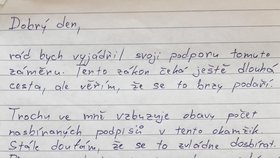 Dobrý den,
rád bych vyjádřil svoji podporu tomuto
záměru. Tento zákon čeká ještě dlouhá
cesta, ale věřím, že se to brzy podaří.
Trochu ve mně vzbuzuje obavy počet
nasbíraných podpisů v tento okamžik
Stále doufám, že se to zvládne dosbírat